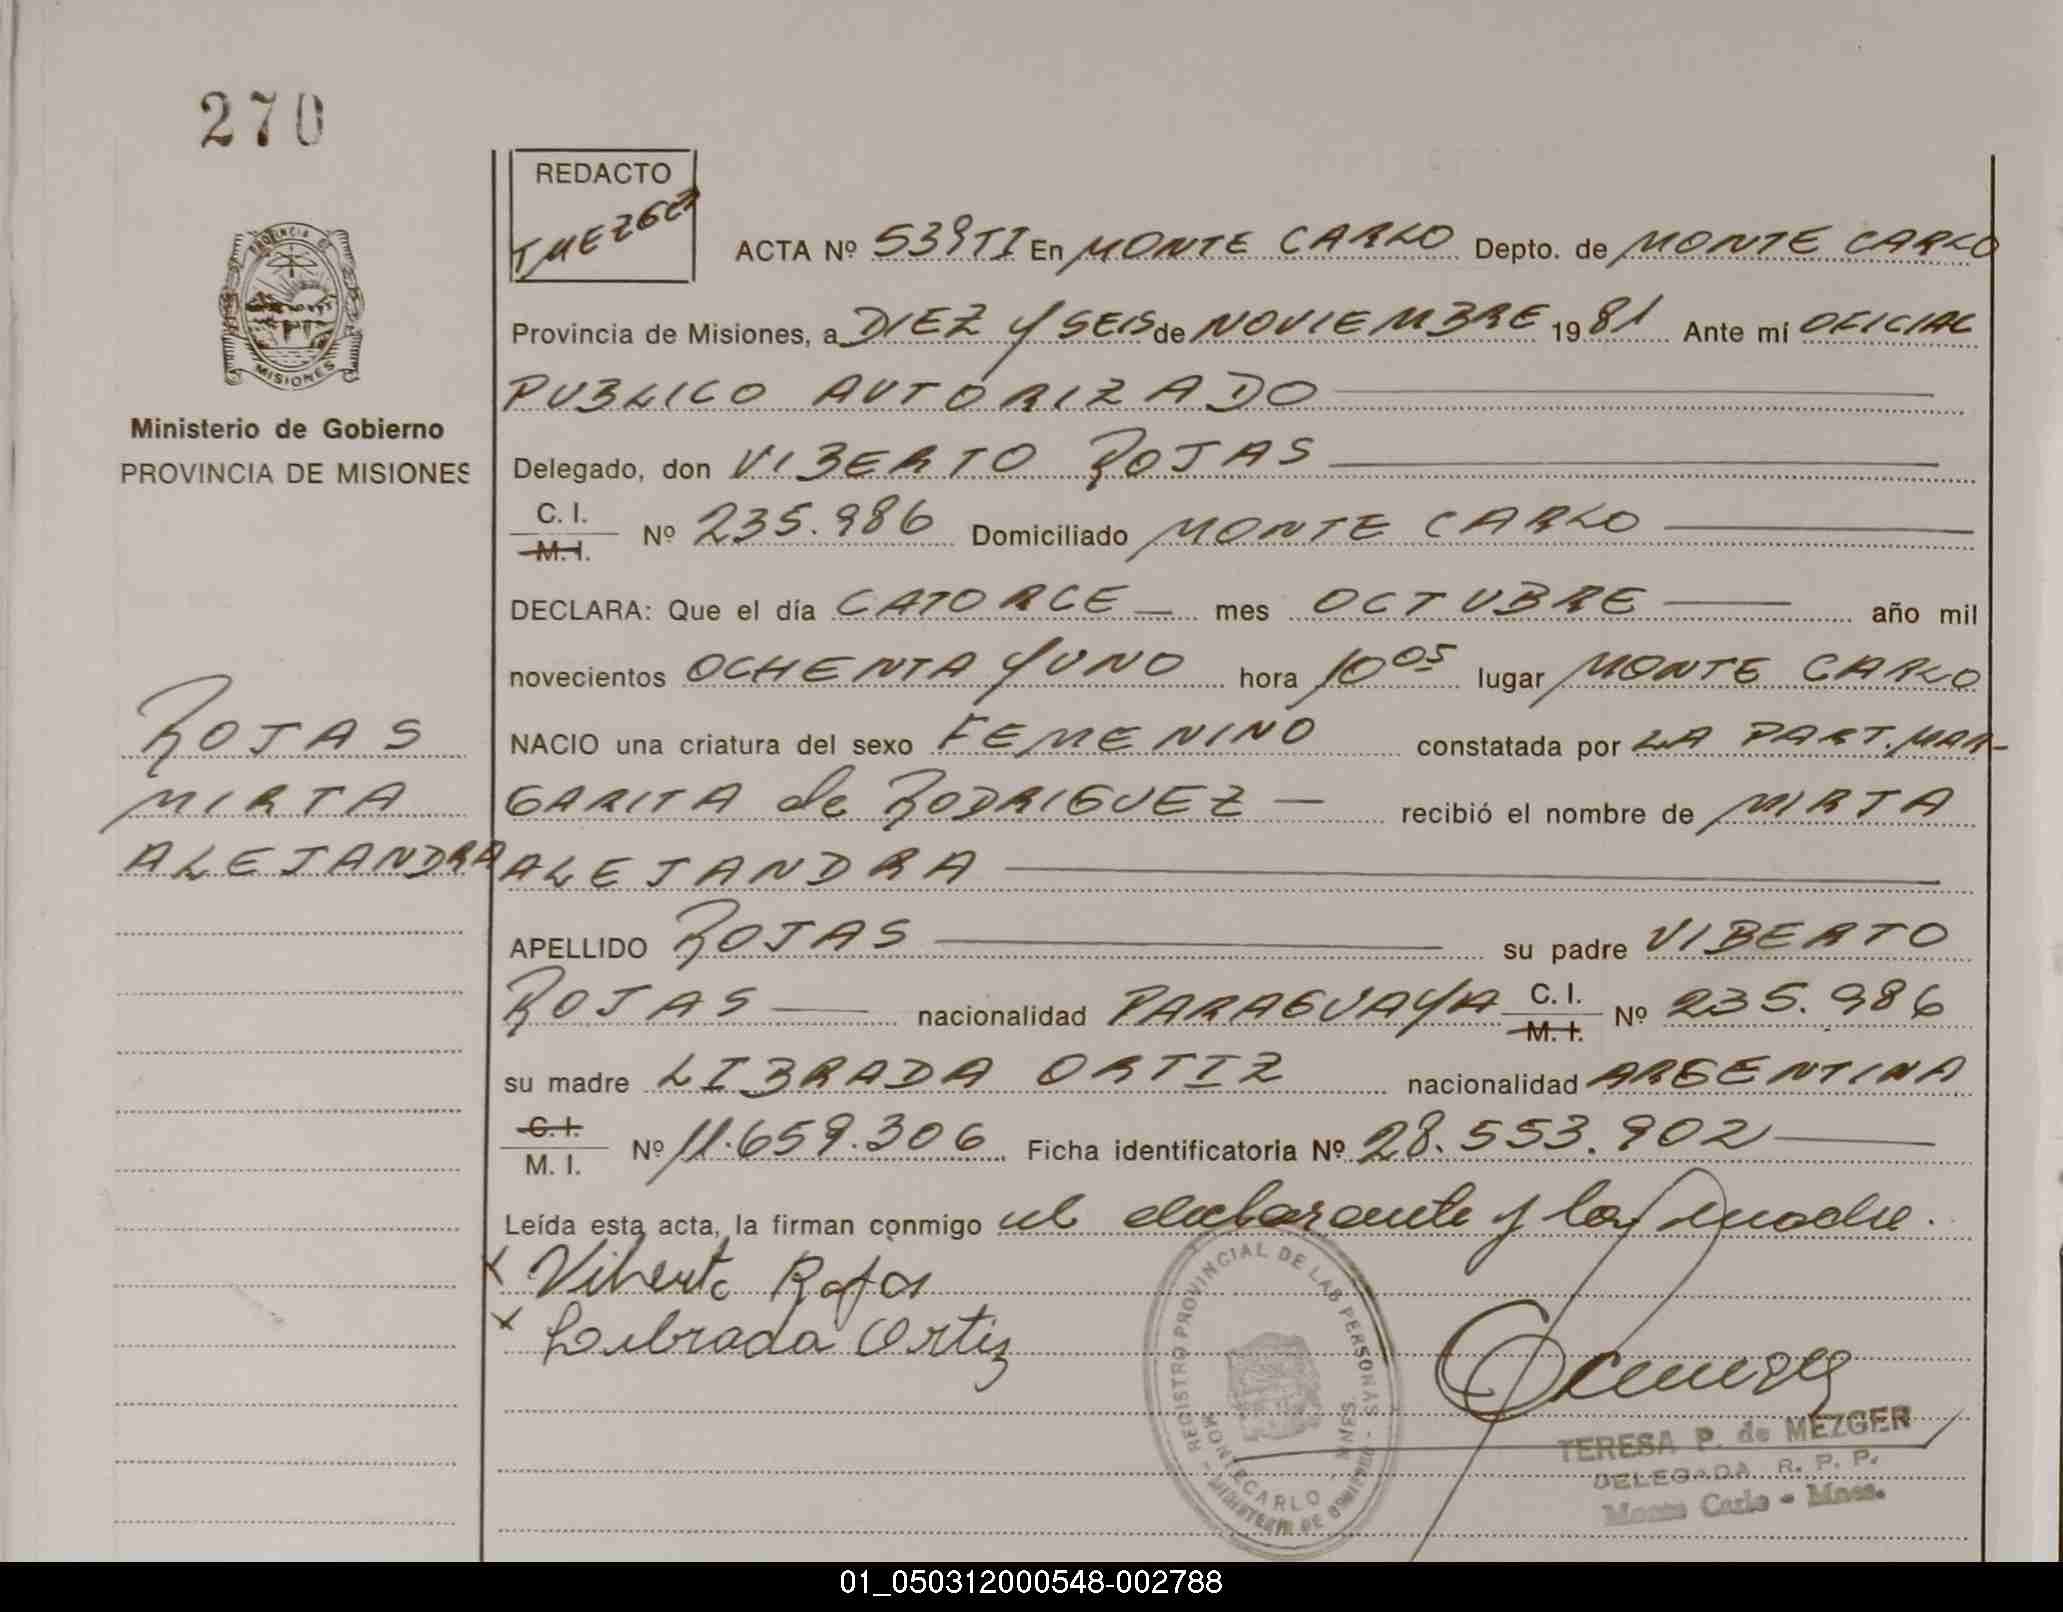 270
REDACTO
T MEZGER
PROVINCIA DE
MISIONES
Ministerio de Gobierno
PROVINCIA DE MISIONES
ROJAS
MIRTA
ALEJANDRA
ACTA Nº 539TI En MONTE CARLO Depto. de MONTE CARLO
Provincia de Misiones, a DIEZ Y SEIS de NOVIEMBRE 1981 Ante mí OFICIAL
PUBLICO AUTORIZADO
Delegado, don VIBERTO ROJAS
C. I.
M. I. Nº 235.986 Domiciliado MONTE CARLO
DECLARA: Que el día CATORCE mes OCTUBRE año mil
novecientos OCHENTA Y UNO hora 10 05 lugar MONTE CARLO
NACIO una criatura del sexo FEMENINO constatada por LA PART. MAR-
GARITA de RODRIGUEZ — recibió el nombre de MIRTA
ALEJANDRA
APELLIDO ROJAS su padre VIBERTO
ROJAS nacionalidad PARAGUAYA C. I. M. I. Nº 235.986
su madre LIBRADA ORTIZ nacionalidad ARGENTINA
C. I.
M. I. Nº 11.659.306 Ficha identificatoria Nº 28.553.902
Leída esta acta, la firman conmigo el declarante y la madre.
x Viberto Rojas
x Librada Ortiz
REGISTRO PROVINCIAL DE LAS PERSONAS
MONTECARLO - MNES.
MINISTERIO DE GOBIERNO
TERESA P. de MEZGER
DELEGADA R. P. P.
Monte Carlo - Mnes.
01_050312000548-002788